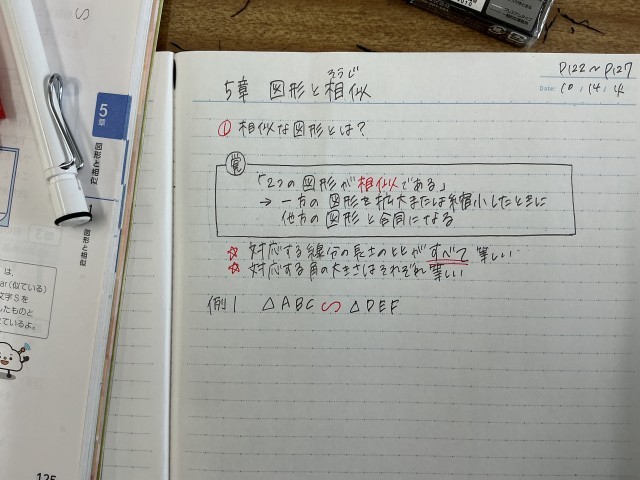 P122～P127
Date: 10 . 14 . 4
そうじ
5章 図形と相似
① 相似な図形とは？
覚
「2つの図形が相似である」
→ 一方の図形を拡大または縮小したときに
他方の図形と合同になる
☆ 対応する線分の長さのととがすべて等しい
☆ 対応する角の大きさはそれぞれ等しい
例1 △ABC ∽ △DEF
∽
5章
図形と相似
図形と相似
は、
ar(似ている)
文字Sを
したものと
ているよ。
125